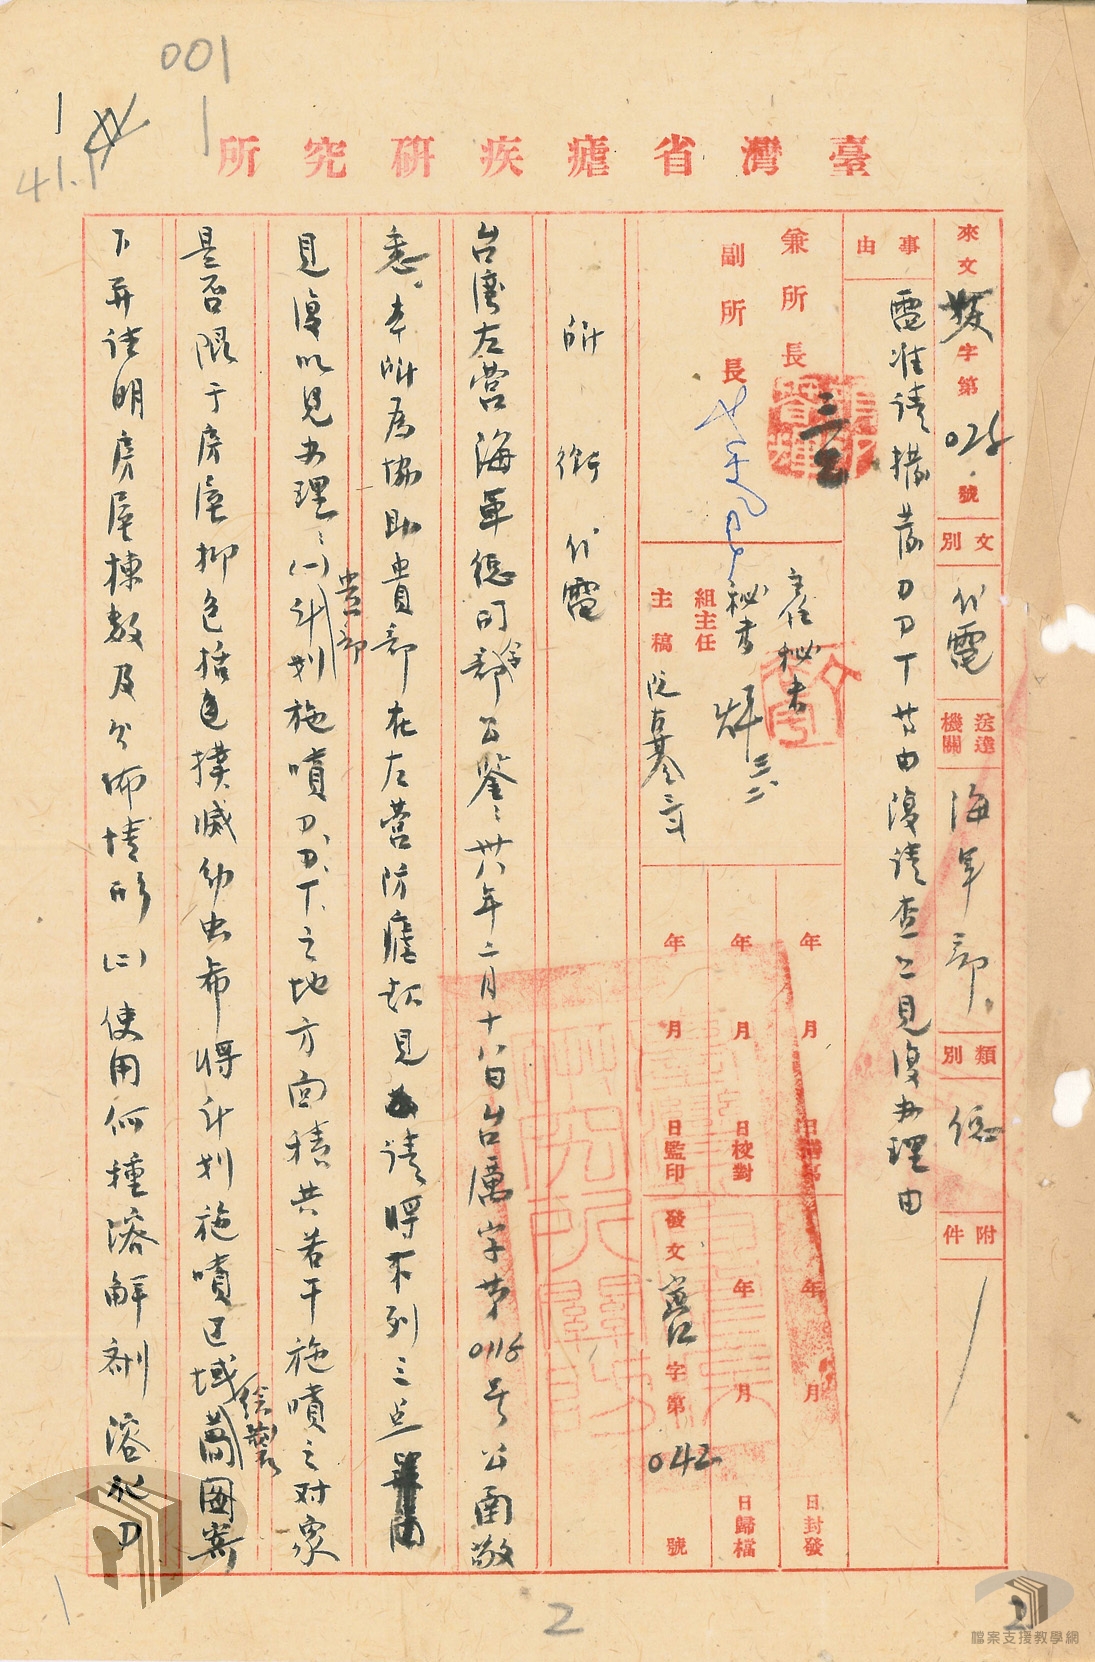 001
臺灣省瘧疾研究所
來文 字第 025 號
文別 代電
送達機關 海軍部
類別
附件
事由
電准請撥發刀刀丁等由復請查照見復辦理由
兼所長
副所長
主任秘書
秘書
組主任
主稿
年 月 日繕寫
年 月 日校對
年 月 日監印
年 月 日封發
年 月 日歸檔
發文 字第 042 號
所銜代電
台灣左營海軍總司令部公鑒：卅八年二月十八日台厲字第0115号公函敬
悉。本所為協助貴部在左營防瘧起見請將下列三点
見復以見办理：(一)貴部計划施噴刀.刀.丁.之地方面積共若干施噴之对象
是否限于房屋抑包括撲滅幼虫希將計划施噴区域繪製圖案
下并註明房屋棟数及分佈情形(二)使用何種溶解剤溶化刀
2
2
檔案支援教學網